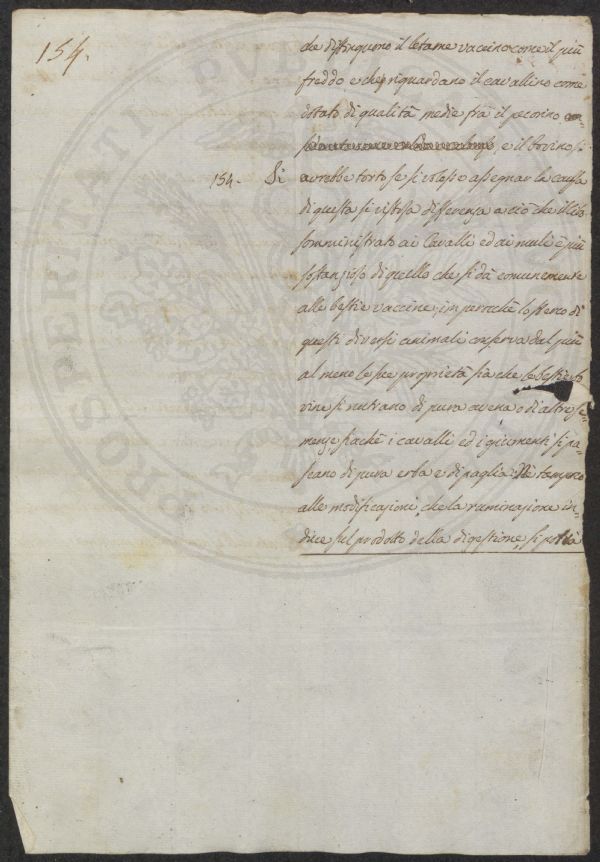 154.
che distinguono il letame vaccino come il più
freddo e che riguardano il cavallino come
dotato di qualità medie frà il pecorino
e il bovino si
154. Si
avrebbe torto se si volesse assegnar la causa
di questa si vistosa differenza a ciò che il cibo
somministrato ai Cavalli ed ai muli è più
sostanzioso di quello che si dà comunemente
alle bestie vaccine; imperocchè lo sterco di
questi diversi animali conserva dal più
al meno le sue proprietà sia che le bestie bo
vine si nutrano di pura avena o di altre se-
menze, siachè i cavalli ed i giumenti si pa-
scano di pura erba e di paglia. Nè tampoco
alle modificazioni, che la ruminazione in-
duce sul prodotto della digestione, si potrà
PROSPERITATI PVBL